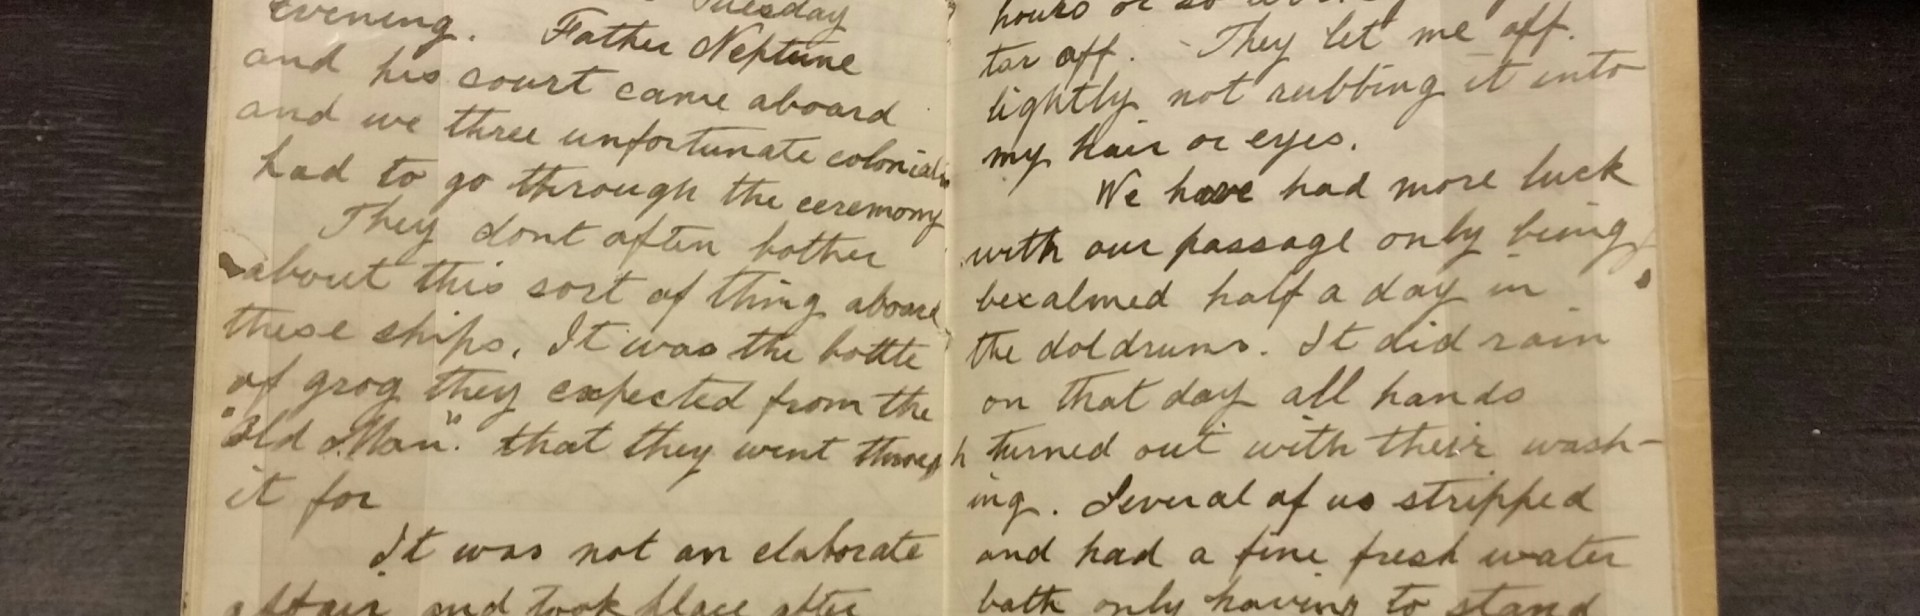 Tuesday
evening. Father Neptune
and his court came aboard
and we three unfortunate colonials
had to go through the ceremony
They dont often bother
about this sort of thing aboard
these ships. It was the bottle
of grog they expected from the
"Old Man". that they went through
it for
It was not an elaborate
affair and took place after
hours or so
tar off. They let me off.
lightly not rubbing it into
my hair or eyes.
We have had more luck
with our passage only being
becalmed half a day in
the doldrums. It did rain
on that day all hands
turned out with their wash-
ing. Several of us stripped
and had a fine fresh water
bath only having to stand